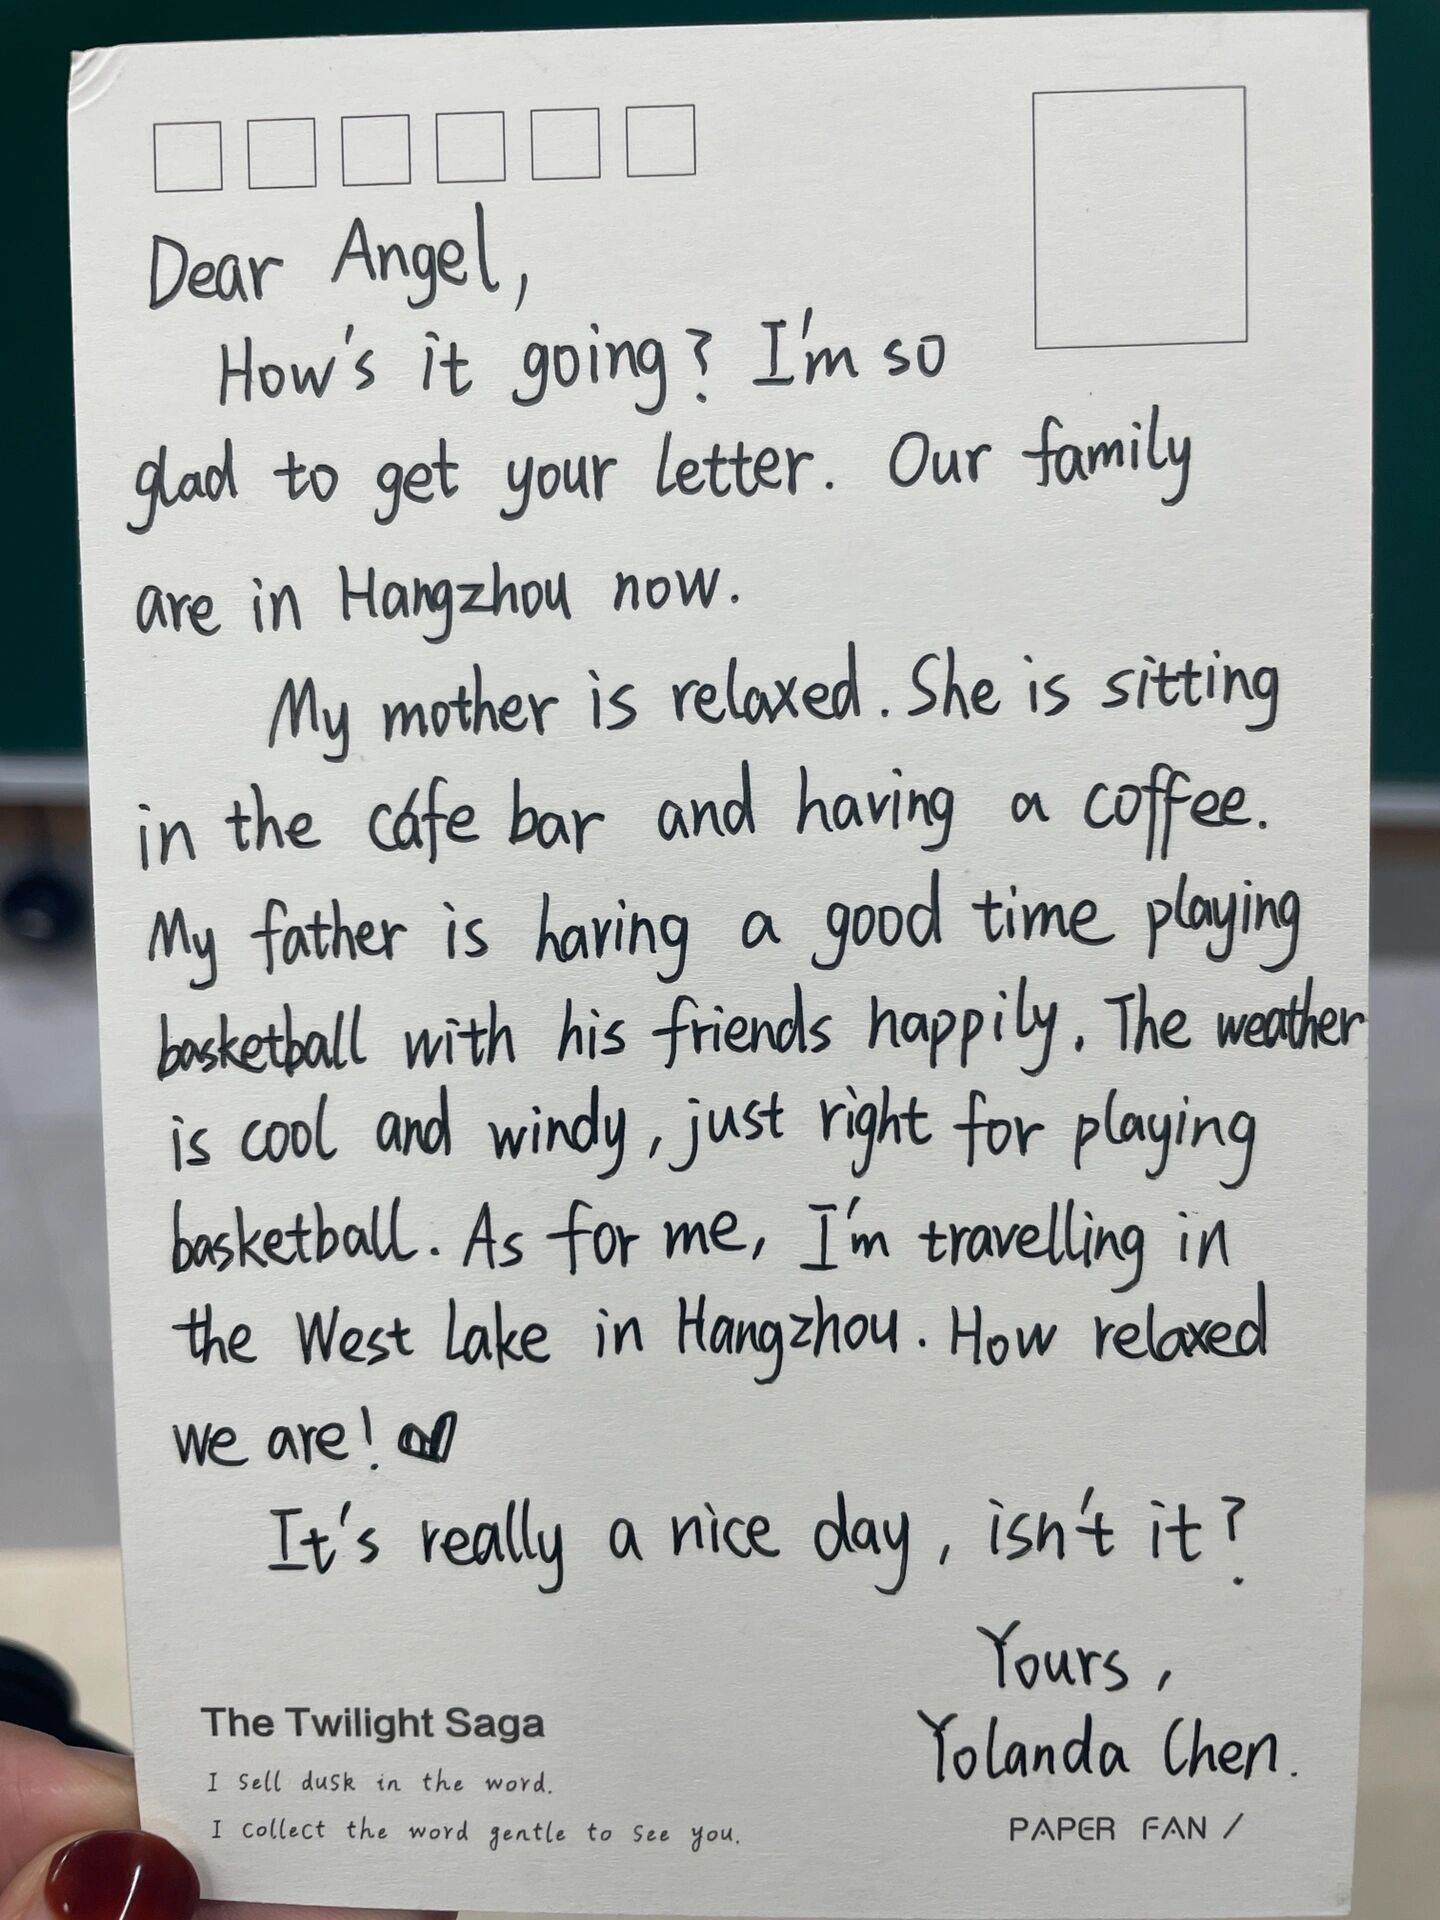 Dear Angel,
How's it going? I'm so
glad to get your letter. Our family
are in Hangzhou now.
My mother is relaxed. She is sitting
in the cáfe bar and having a coffee.
My father is having a good time playing
basketball with his friends happily. The weather
is cool and windy, just right for playing
basketball. As for me, I'm travelling in
the West Lake in Hangzhou. How relaxed
we are!
It's really a nice day, isn't it?
Yours,
Yolanda Chen.
The Twilight Saga
I sell dusk in the word.
I collect the word gentle to see you.
PAPER FAN /